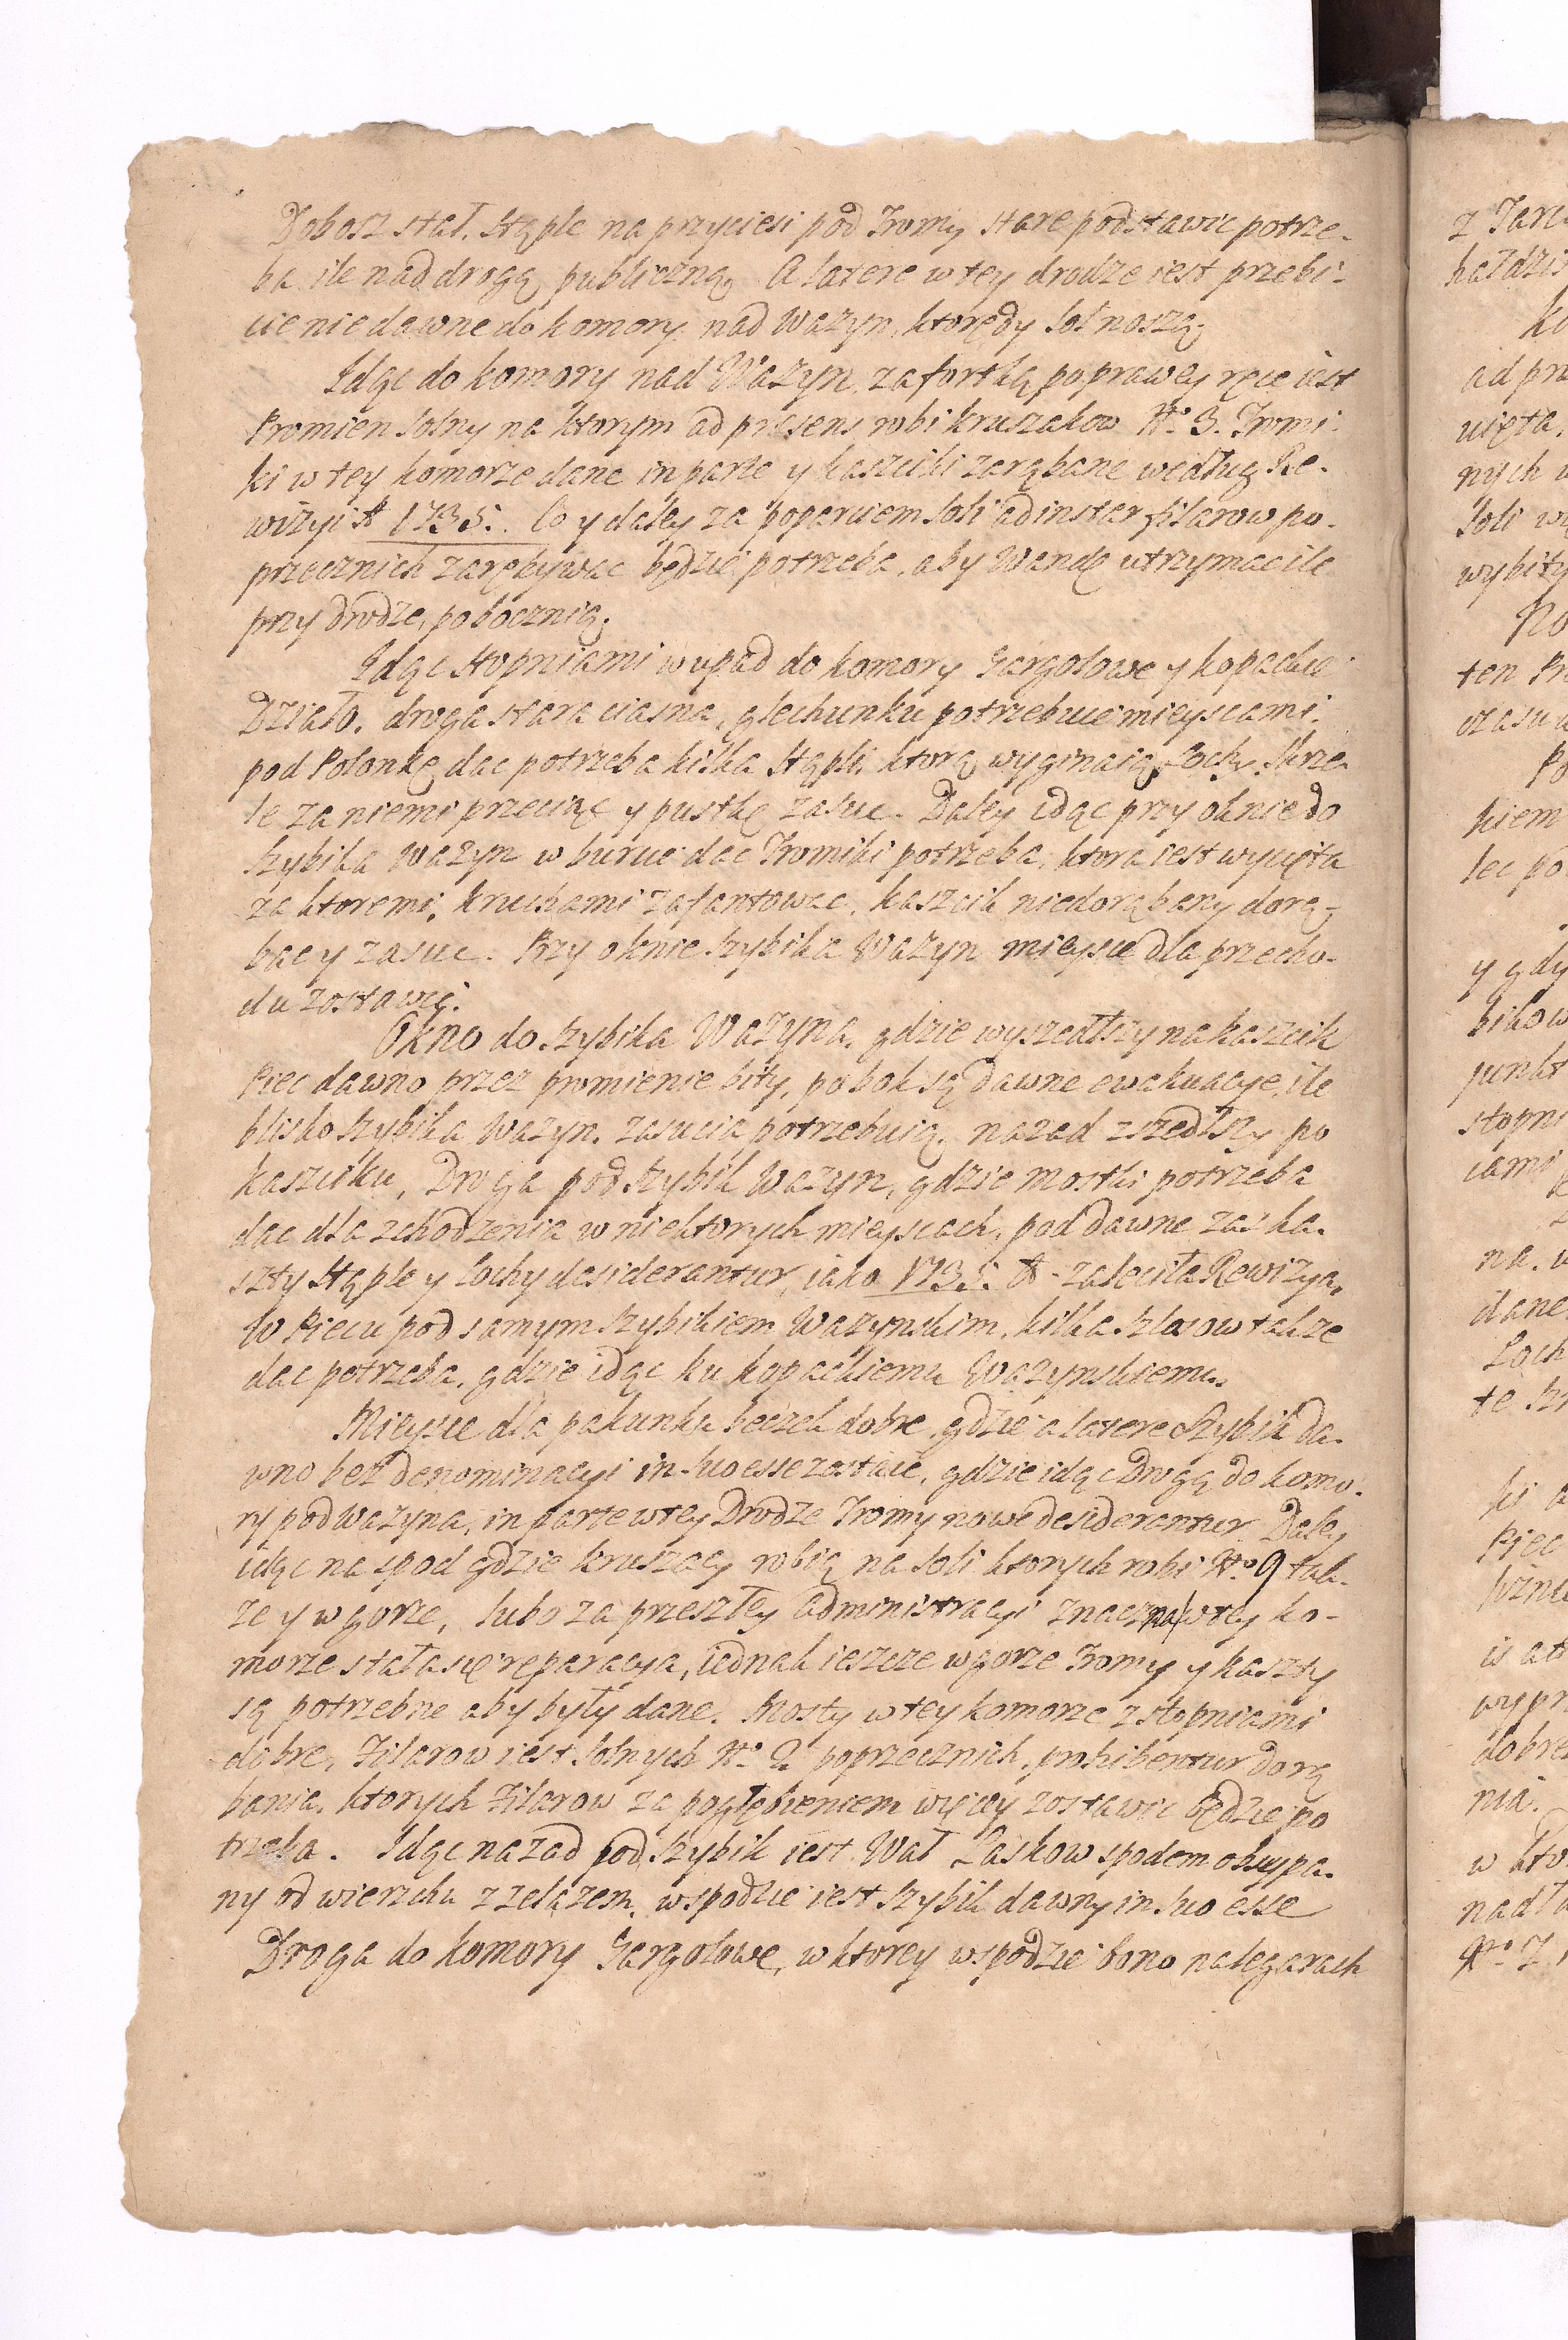 Dobosz stał. Stęple na przyciesi pod Tromy stare podstawic potrze-
ba ile nad drogą publiczną. A latere w tey drodze iest przebi-
cie nie dawne do komory nad Wazyn, ktorędy sol noszą.
Idąc do komory nad Wazyn za fortką po prawey ręce iest
Promien solny na ktorym ad præsens robi kruszakow No 3. Tromi-
ki w tey komorze dane in parte y kaszciki zarąbane według Re-
wizyi Ao 1735. Co y daley za poparciem soli ad instar filarow po-
przecznich zarębywac będzie potrzeba, aby Wandę utrzymac ile
przy drodze, pobocznią.
Idąc stopniami w upad do komory Gargołowe y kopackie
Działo, droga stara ciasna, glechunku potrzebuie mieyscami.
pod Polonkę dac potrzeba kilka Stępli, ktorą wyginaią Lochy. Skrze-
le za niemi przeciąc y pustkę zasuc. Daley idąc przy oknie do
szybika Wazyn w burcie dac Tromiki potrzeba, ktora iest wycięta
za ktoremi, kruchami zafantowac, kaszcik niedorąbany dorą-
bac y zasuc. Przy oknie szybika Wazyn mieysce dla przecho-
du zostawic.
Okno do szybika Wazyna, gdzie wyszedłszy na kaszcik
Piec dawno przez promienie bity, po bok są dawne ewakuacye, ile
blisko szybika Wazyn, zasucia potrzebuią. nazad zszedłszy po
kaszciku, Droga pod szybik Wazyn, gdzie mostki potrzeba
dac dla zchodzenia w niektorych mieyscach, pod dawne zas ka-
szty Stęple y Lochy desiderantur, iako 1735. Ao zaleciła Rewizya.
W Piecu pod samym szybikiem Wazynskim, kilka szlosow takze
dac potrzeba, gdzie idąc ku kopackiemu Wazynskiemu.
Mieysce dla pakunku beczek dobre, gdzie a latere Szybik da-
wno bez denominacyi in suo esse zostaie, gdzie idąc Drogą do komo-
ry pod Wazyna, in parte w tey Drodze Tromy nowe desiderantur. Daley
idąc na spod gdzie kruszacy robią na soli ktorych robi No 9 tak-
ze y w gorze, lubo za przeszłey administracyi znaczna w tey ko-
morze stała się reparacya, iednak ieszcze w gorze Tromy y kaszty
są potrzebne aby były dane. Mosty w tey komorze z stopniami
dobre, Filarow iest solnych No 2. poprzecznich, prohibentur do rą
bania, ktorych Filarow za pogłębieniem więcey zostawic będzie po
trzeba. Idąc nazad pod szybik iest Wał Laskow spodem obsypa-
ny od wierzchu z zelazem, w spodzie iest szybik dawny in suo esse
Droga do komory Gargołowe, w ktorey w spodzie bono na legarach